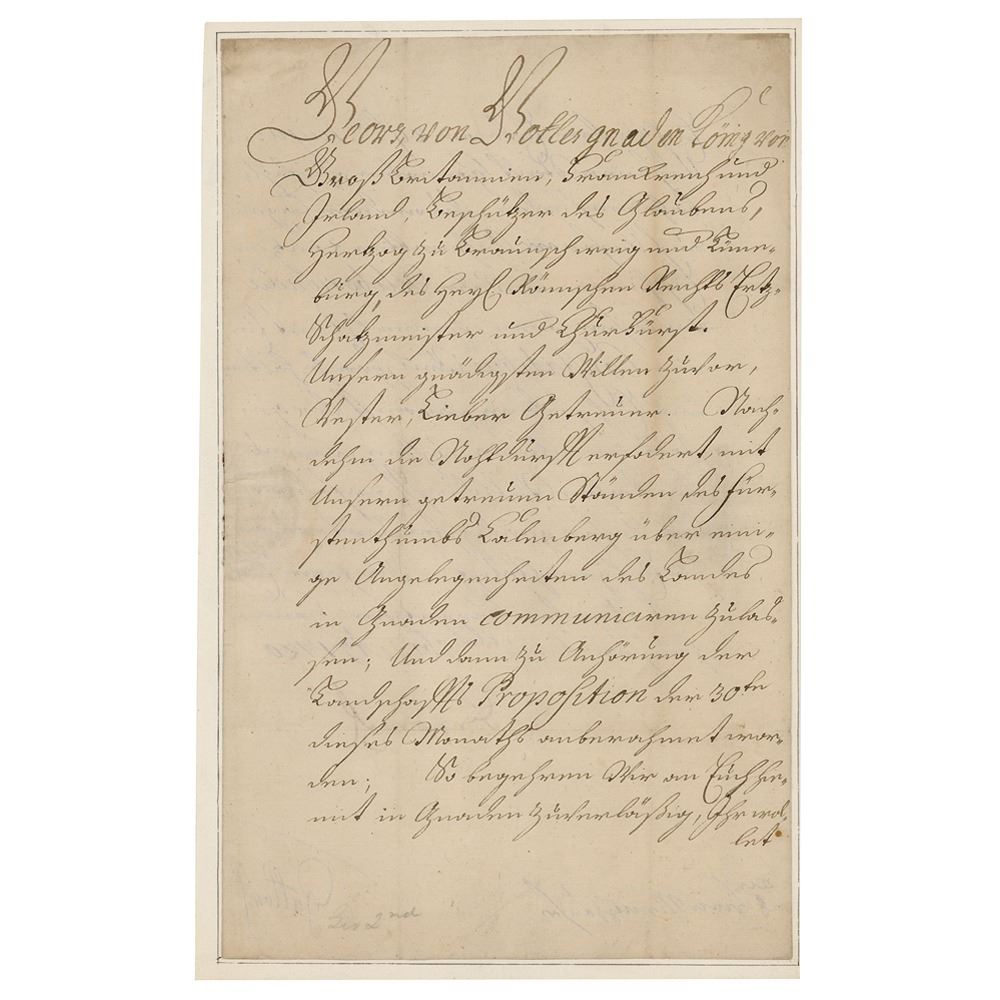 Georg, von Gottes gnaden König von
Groß Britannien, Franckreich und
Irland, Beschützer des Glaubens,
Hertzog zu Braunschweig und Lüne-
burg, des Heyl. Römischen Reichs Ertz-
Schatzmeister und Churfürst.
Unsern gnädigsten Willen zuvor,
Vester, Lieber Getreuer. Nach-
dehm die Nohtdurfft erfodert, mit
Unsern getreuen Ständen des Für-
stenthumbs Calenberg über eini-
ge Angelegenheiten des Landes
in Gnaden communiciren zulas-
sen; Und dann zu Anhörung der
Landschaffts Proposition der 30te
dieses Monaths anberahmet wor-
den; So begehren Wir an Euch hie-
mit in Gnaden zuverläßig, Ihr wol-
let
Geo 2nd